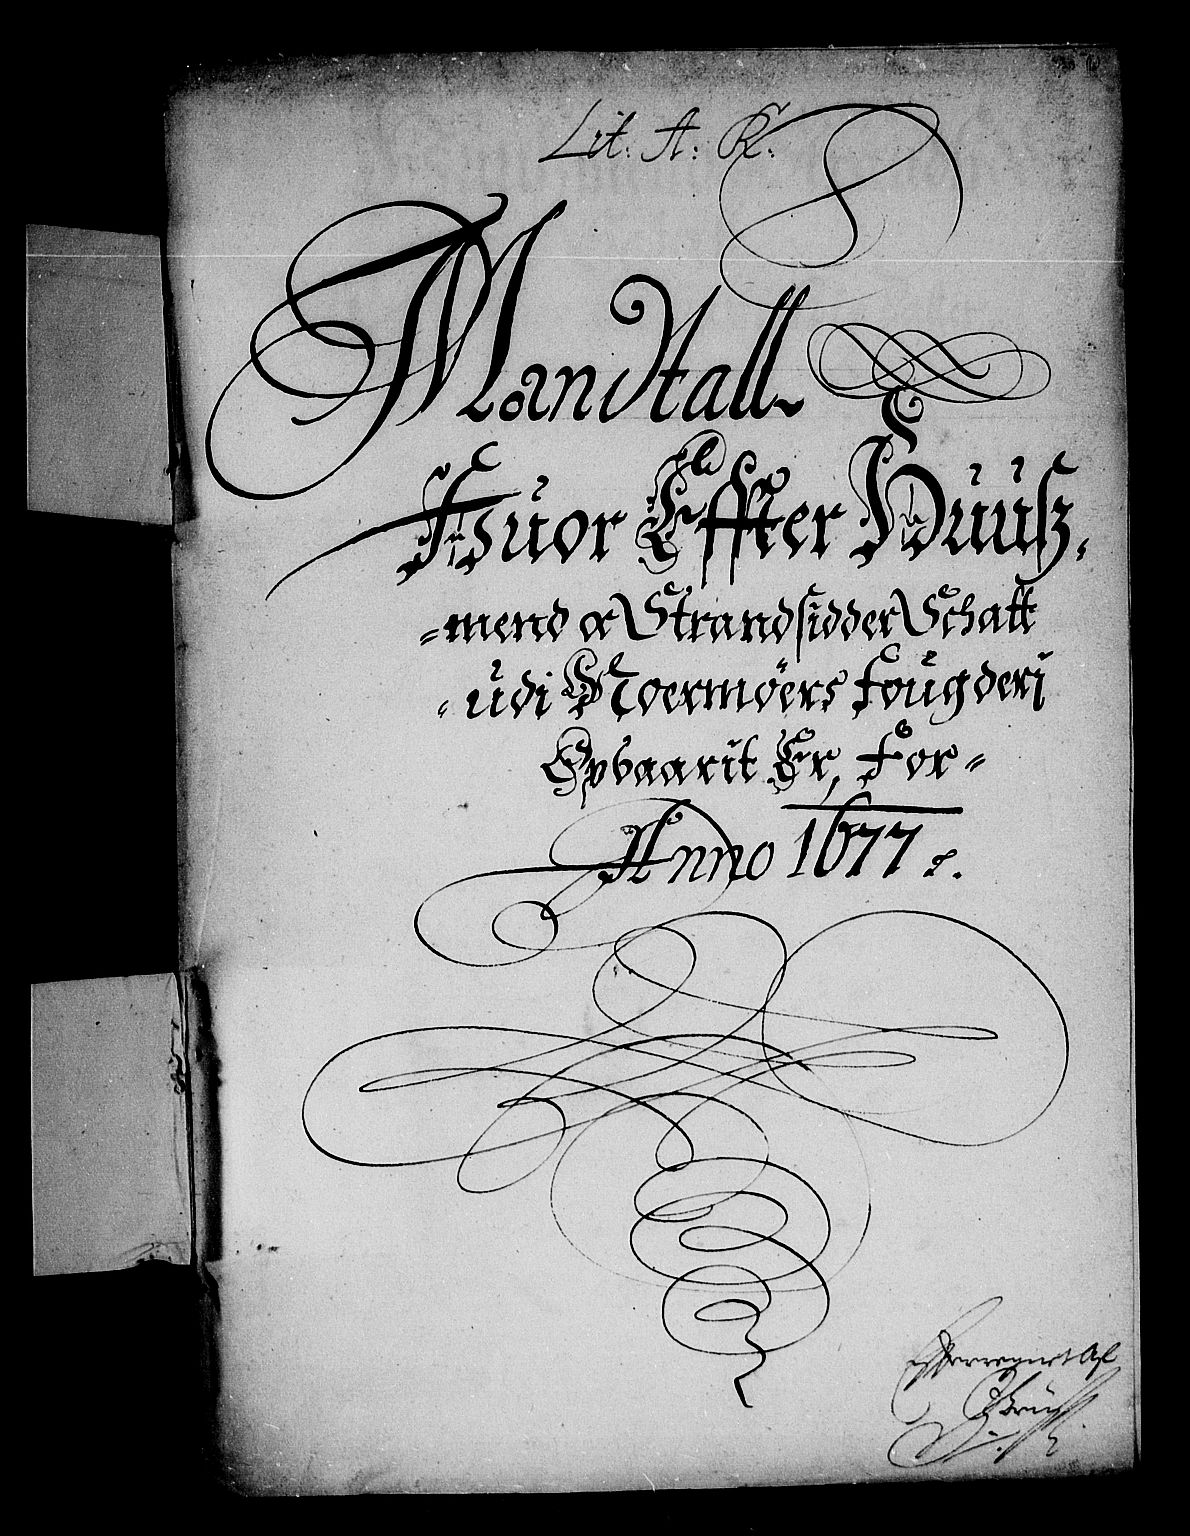 Lit. A: K:
Mandtall
Huor Effter Huusz,
=mend oc Strandsidder Schatt
=udi Noermøers fougderi
Opbaarit Er, For=
Anno 1677
Efterregnet Af